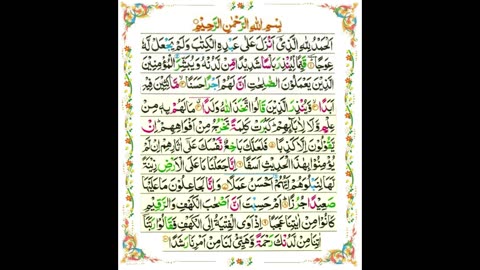 بِسْمِ اللهِ الرَّحْمٰنِ الرَّحِيْمِ
اَلْحَمْدُ لِلّٰهِ الَّذِيْۤ اَنْزَلَ عَلٰى عَبْدِهِ الْكِتٰبَ وَلَمْ يَجْعَلْ لَّهٗ
عِوَجًا ۜ قَيِّمًا لِّيُنْذِرَ بَاْسًا شَدِيْدًا مِّنْ لَّدُنْهُ وَيُبَشِّرَ الْمُؤْمِنِيْنَ
الَّذِيْنَ يَعْمَلُوْنَ الصّٰلِحٰتِ اَنَّ لَهُمْ اَجْرًا حَسَنًا ۙ مَّاكِثِيْنَ فِيْهِ
اَبَدًا ۙ وَّيُنْذِرَ الَّذِيْنَ قَالُوا اتَّخَذَ اللهُ وَلَدًا ۗ مَا لَهُمْ بِهٖ مِنْ
عِلْمٍ وَّلَا لِاٰبَآئِهِمْ ؕ كَبُرَتْ كَلِمَةً تَخْرُجُ مِنْ اَفْوَاهِهِمْ ؕ اِنْ
يَّقُوْلُوْنَ اِلَّا كَذِبًا ۞ فَلَعَلَّكَ بَاخِعٌ نَّفْسَكَ عَلٰۤى اٰثَارِهِمْ اِنْ لَّمْ
يُؤْمِنُوْا بِهٰذَا الْحَدِيْثِ اَسَفًا ۞ اِنَّا جَعَلْنَا مَا عَلَى الْاَرْضِ زِيْنَةً
لَّهَا لِنَبْلُوَهُمْ اَيُّهُمْ اَحْسَنُ عَمَلًا ۞ وَاِنَّا لَجَاعِلُوْنَ مَا عَلَيْهَا
صَعِيْدًا جُرُزًا ؕ اَمْ حَسِبْتَ اَنَّ اَصْحٰبَ الْكَهْفِ وَالرَّقِيْمِ
كَانُوْا مِنْ اٰيٰتِنَا عَجَبًا ۞ اِذْ اَوَى الْفِتْيَةُ اِلَى الْكَهْفِ فَقَالُوْا رَبَّنَاۤ
اٰتِنَا مِنْ لَّدُنْكَ رَحْمَةً وَّهَيِّئْ لَنَا مِنْ اَمْرِنَا رَشَدًا ۞